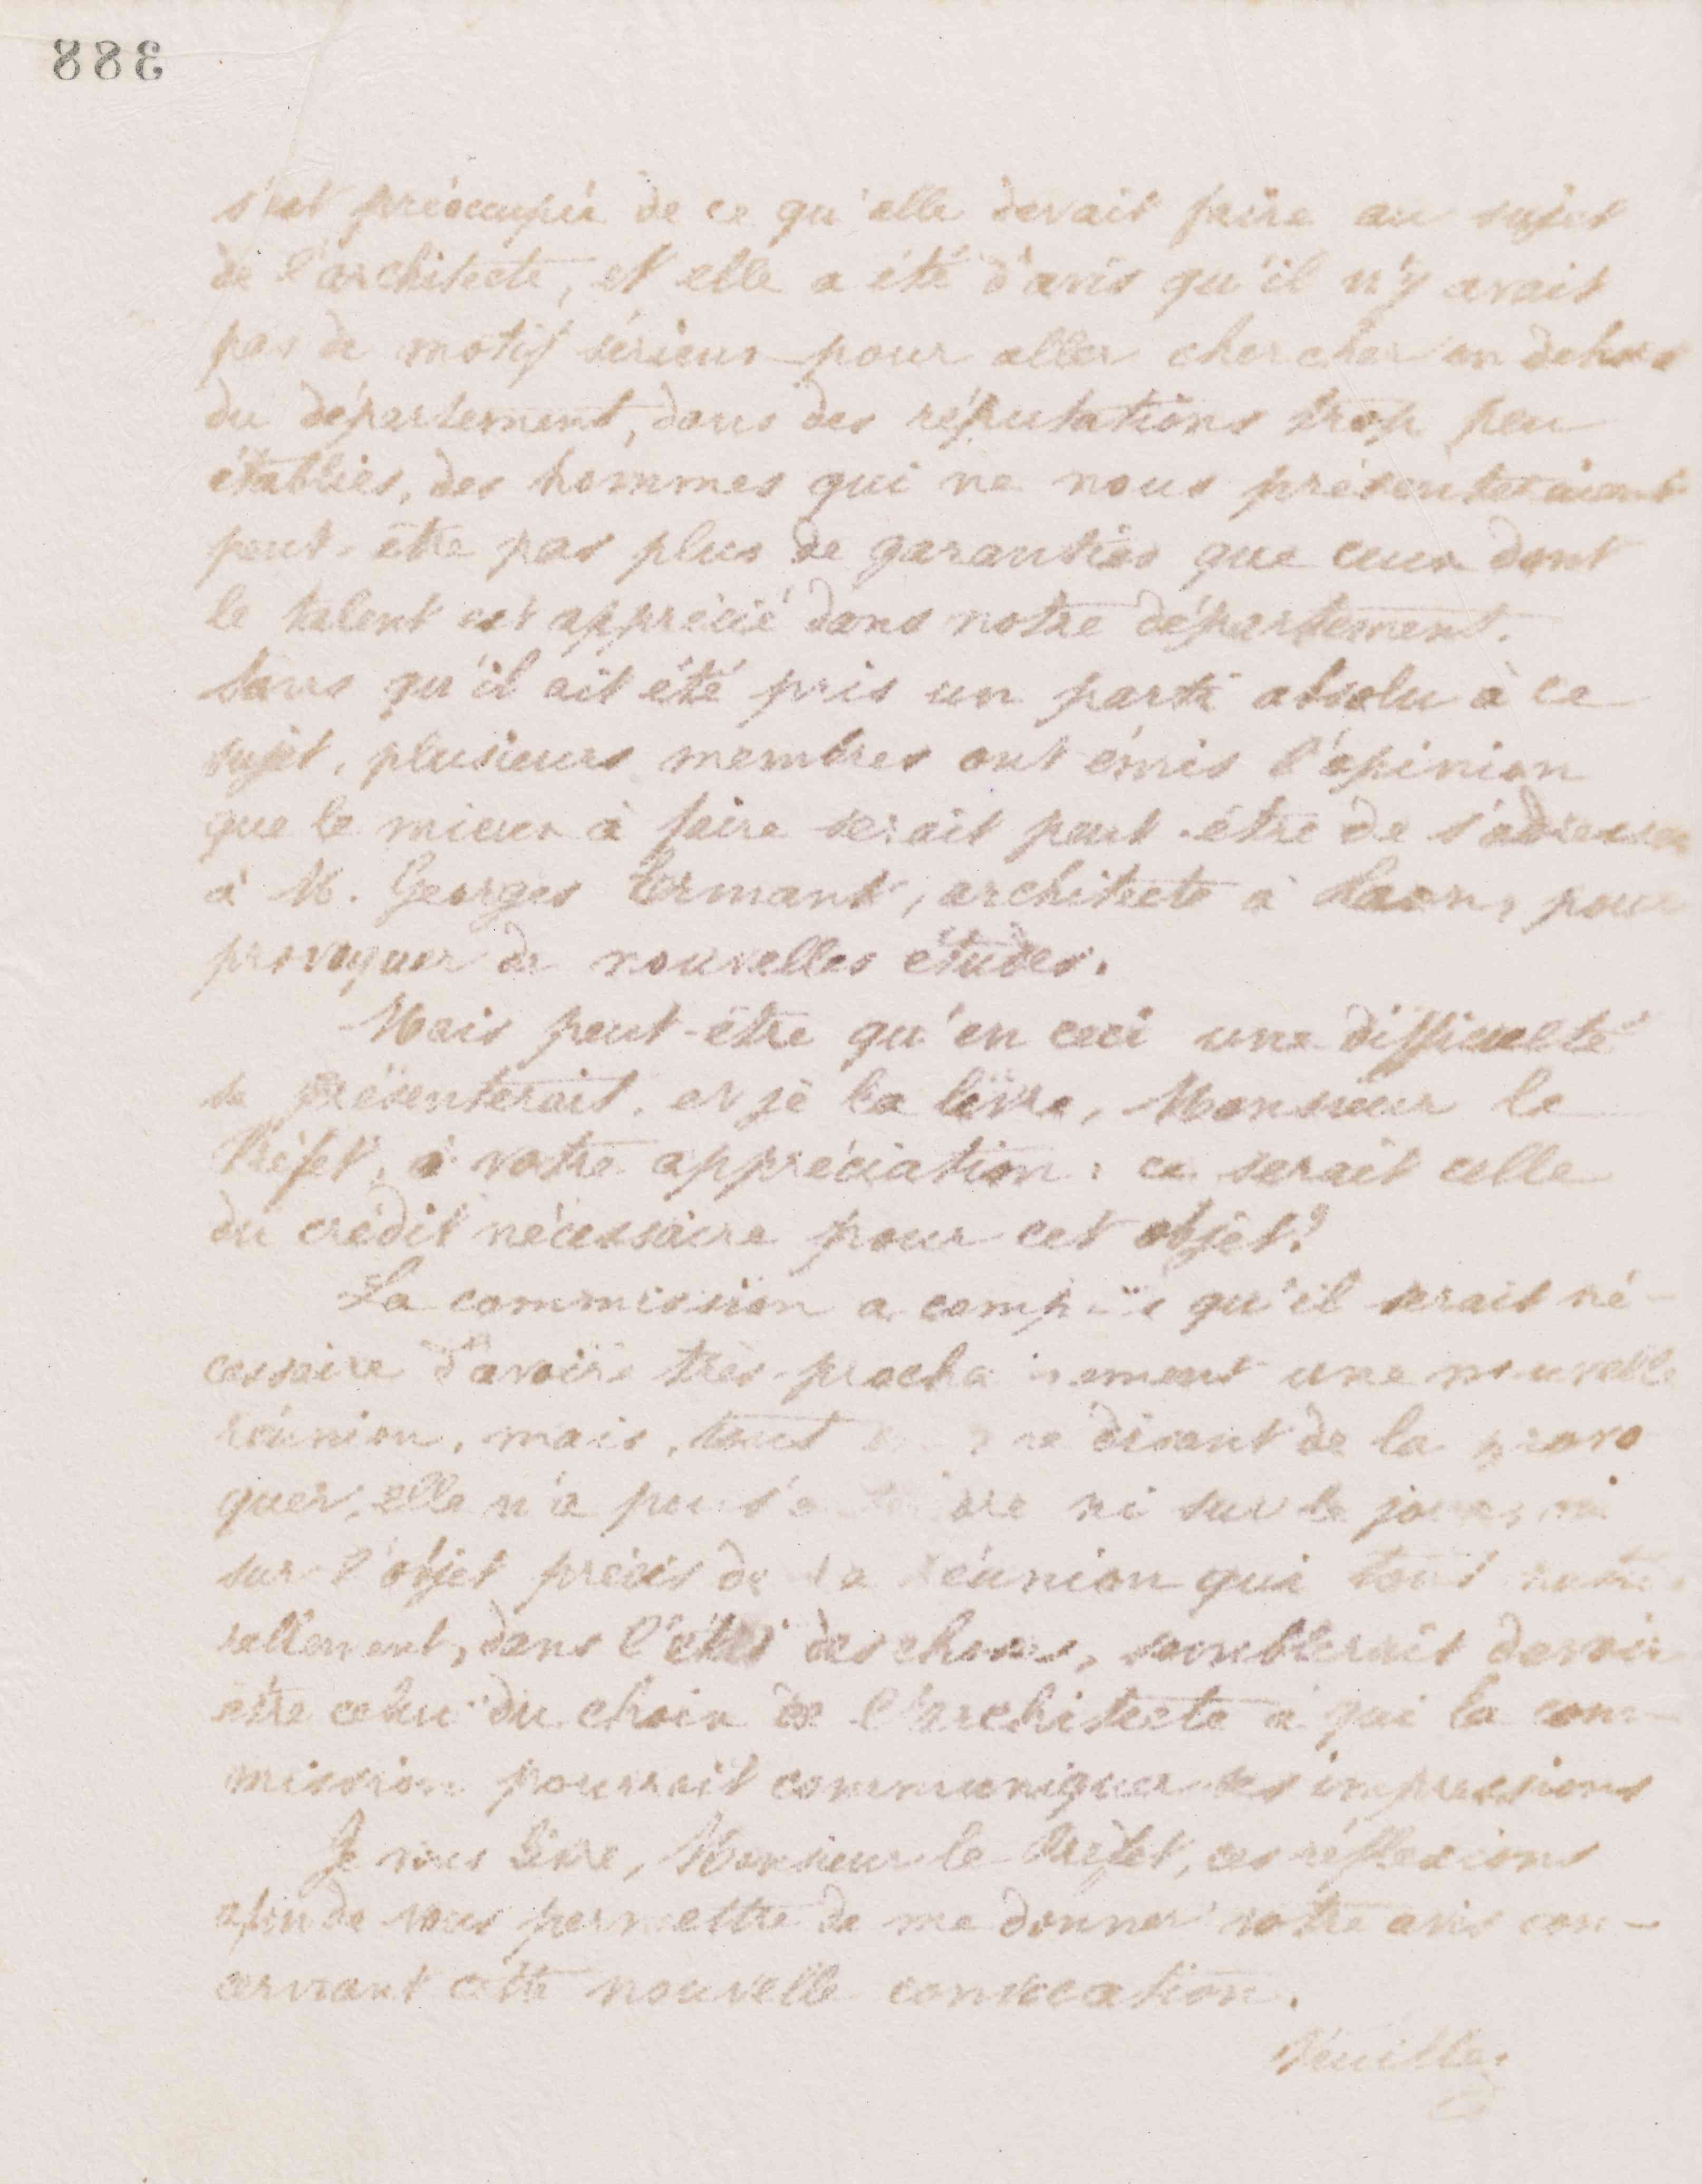 388
s'est préoccupée de ce qu'elle devait faire au sujet
de l'architecte, et elle a été d'avis qu'il n'y avait
pas de motif sérieux pour aller chercher en dehors
du département, dans des réputations trop peu
établies, des hommes qui ne nous présenteraient
peut-être pas plus de garanties que ceux dont
le talent est apprécié dans notre département.
Sans qu'il ait été pris un parti absolu à ce
sujet, plusieurs membres ont émis l'opinion
que le mieux à faire serait peut-être de s'adresser
à M. Georges Ermant, architecte à Laon, pour
provoquer de nouvelles études.
Mais peut-être qu'en ceci une difficulté
se présenterait, et je la livre, Monsieur le
Préfet, à votre appréciation : ce serait celle
du crédit nécessaire pour cet objet?
La commission a compris qu'il serait né-
cessaire d'avoir très-prochainement une nouvelle
réunion, mais, tout disant de la provo
quer, elle n'a pu ni sur le jour, ni
sur l'objet précis de la réunion qui tout natu
rellement, dans l'état des choses, semblerait devoir
être celui du choix de l'architecte à qui la com-
mission pourrait communiquer ses impressions
Je vous livre, Monsieur le Préfet, ces réflexions
afin de vous permettre de me donner votre avis con-
cernant cette nouvelle convocation.
Veuillez